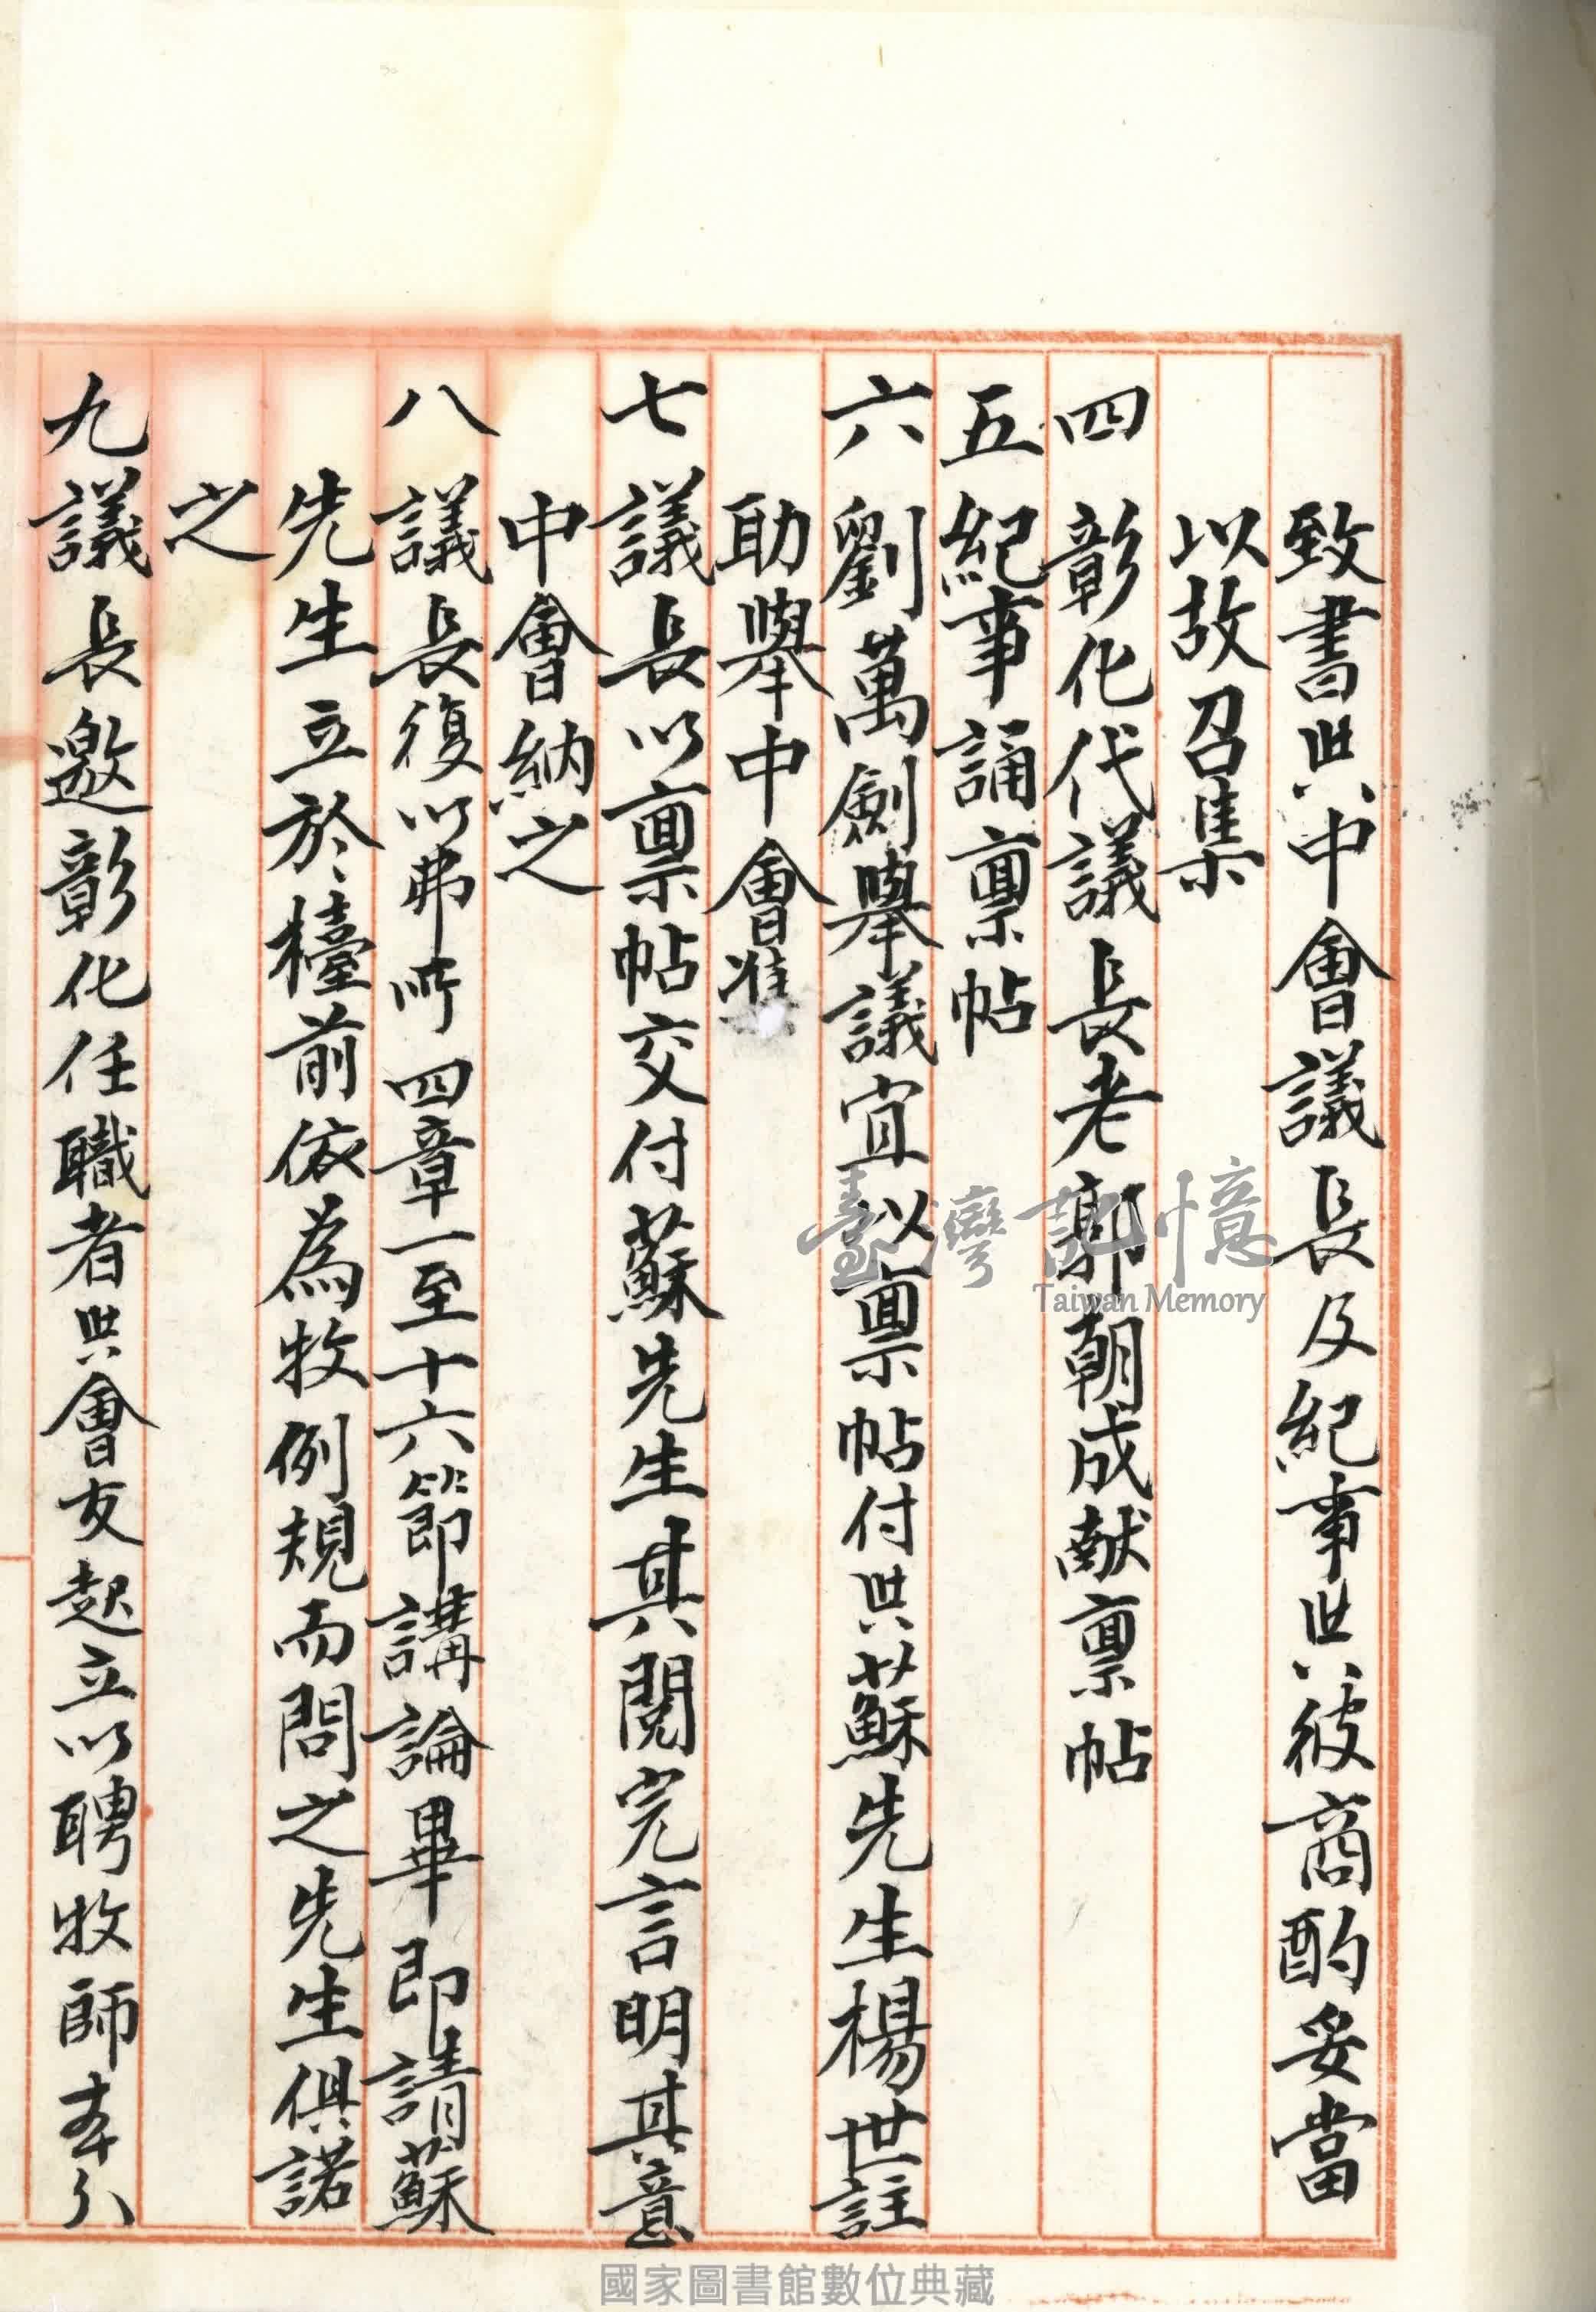 致書與中會議長及紀事與彼商酌妥當
以故召集
四 彰化代議長老郭朝成献禀帖
五 紀事誦禀帖
六 劉萬劍舉議宜以禀帖付與蘇先生楊世註
助舉中會准
七 議長以禀帖交付蘇先生其閱完言明其意
中會納之
八 議長復以弗所四章一至十六節講論畢即請蘇
先生立於檯前依為牧例規而問之先生俱諾
之
九 議長邀彰化任職者與會友起立以聘牧師本分
臺灣記憶
Taiwan Memory
國家圖書館數位典藏